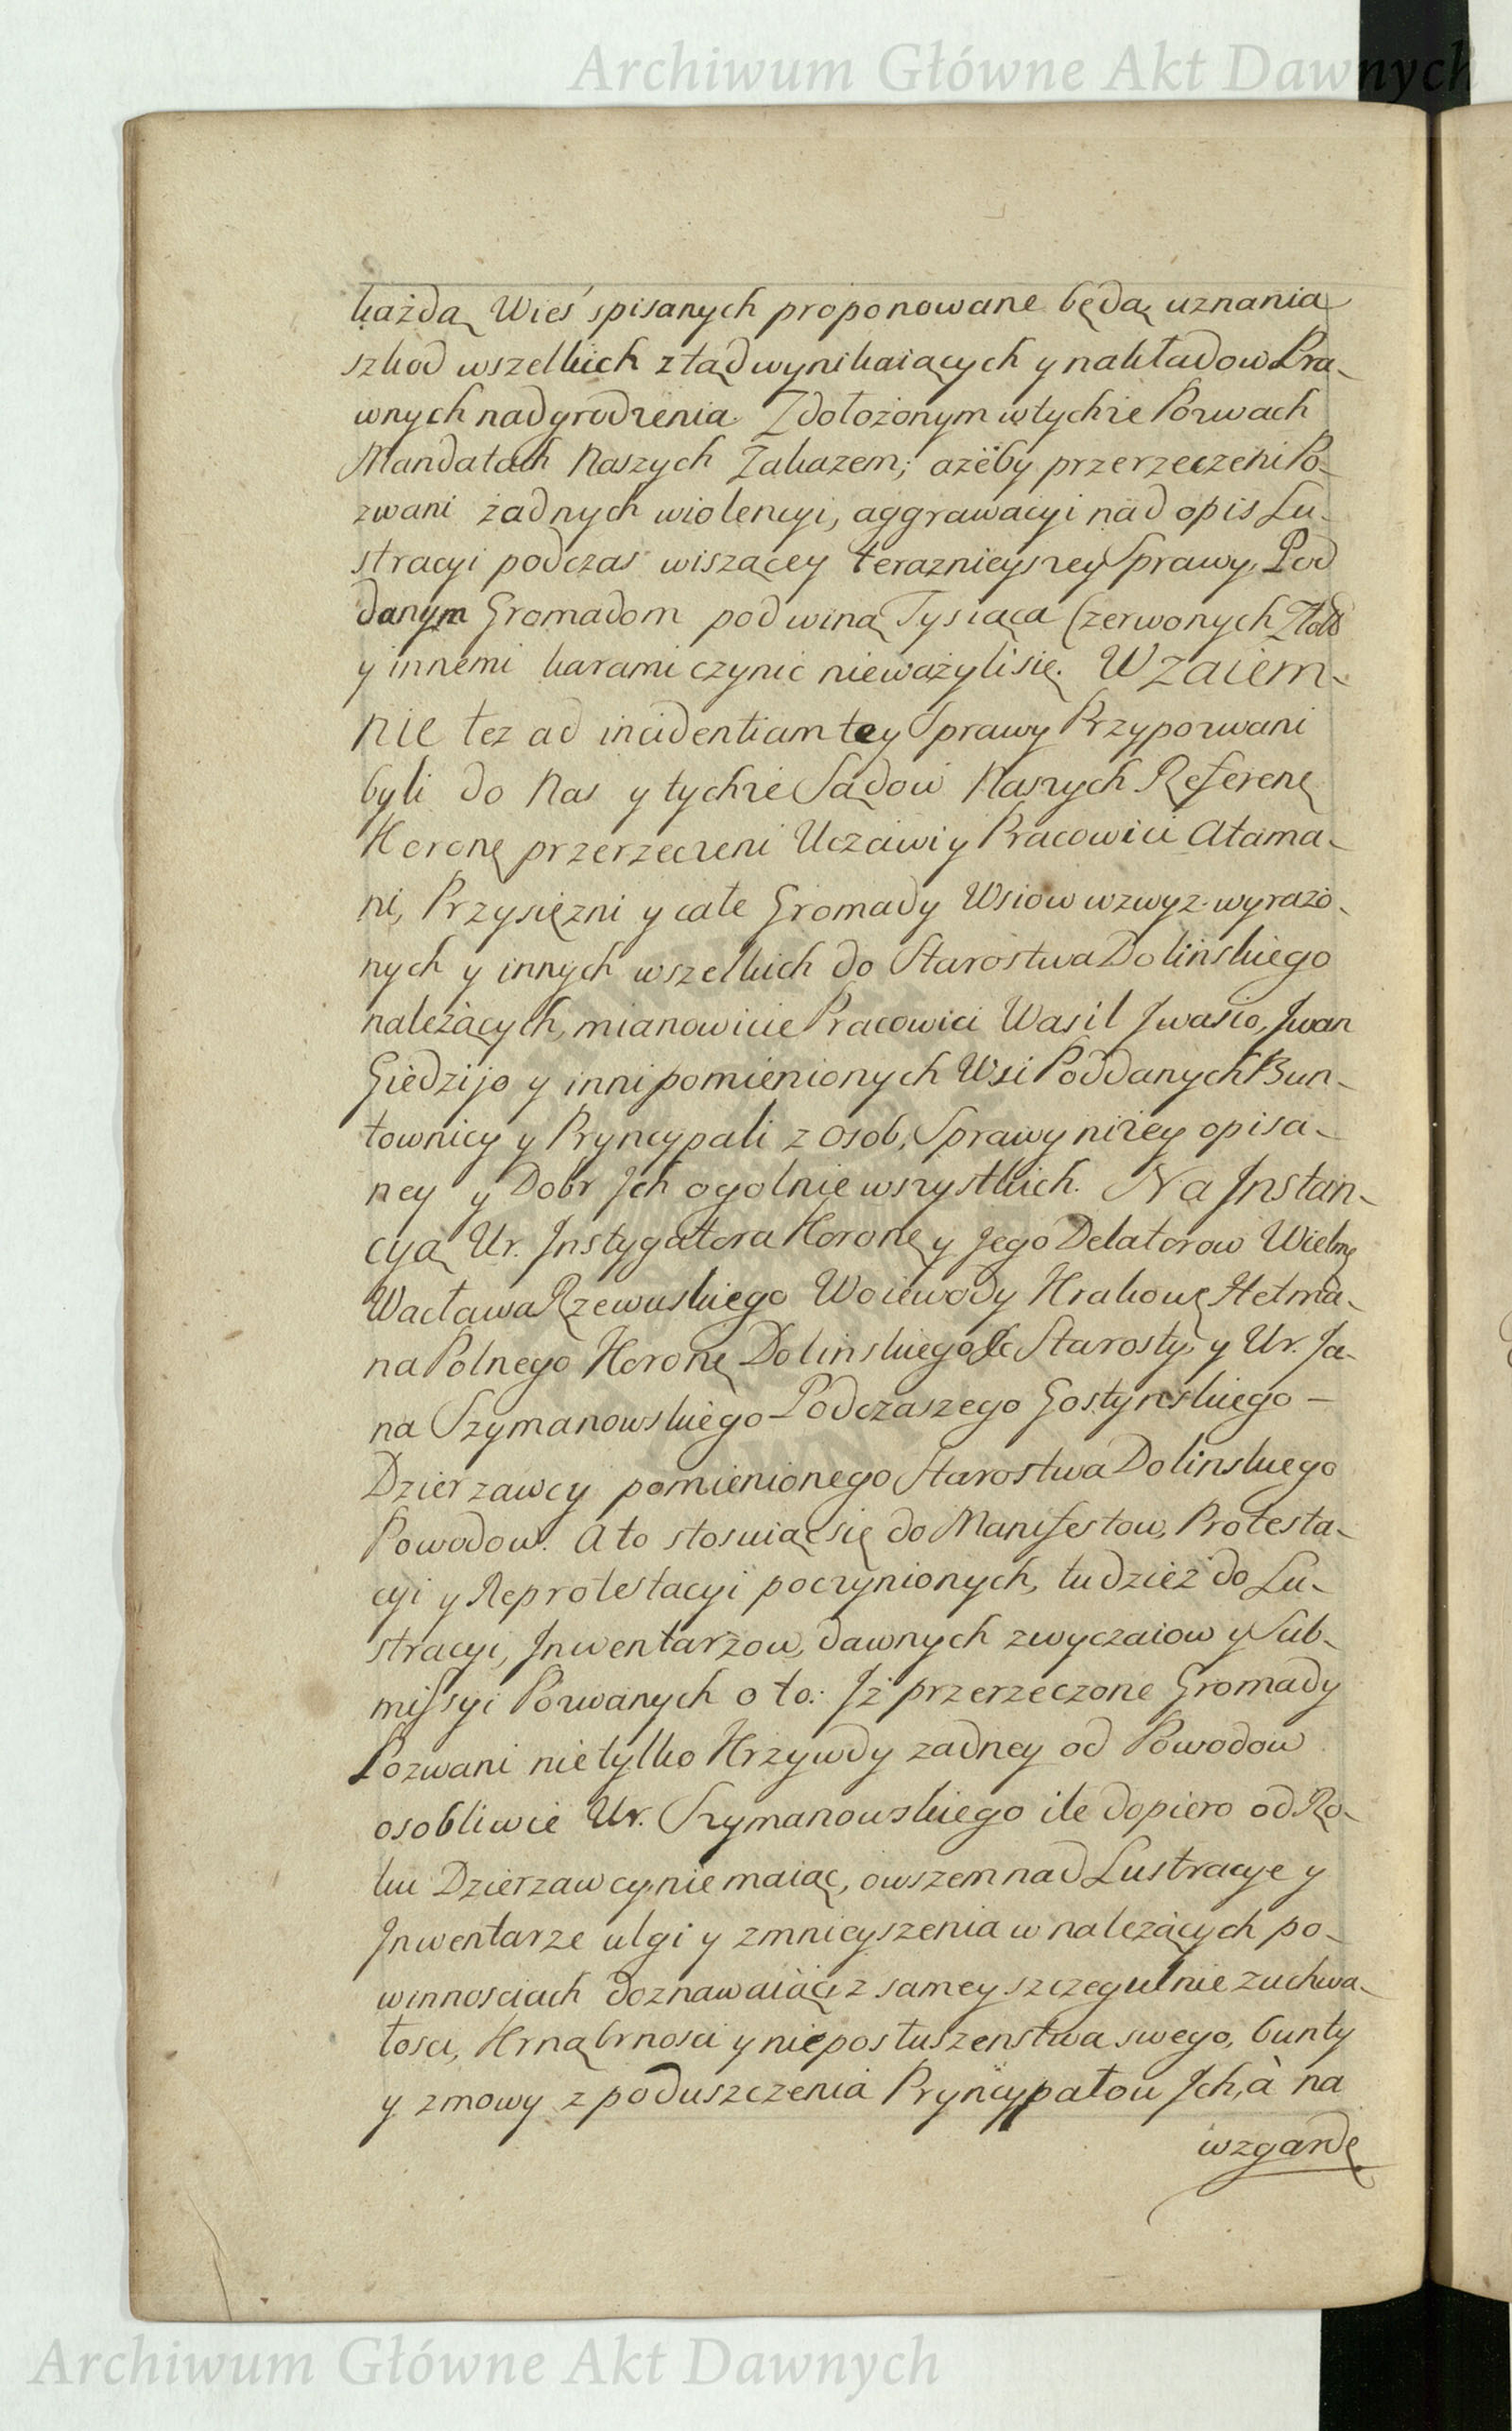 Archiwum Główne Akt Dawnych
każdą Wieś spisanych proponowane będą uznania
szkod wszelkich ztąd wynikaiących y nakładow Pra-
wnych nadgrodzenia. Zdołożonym wtychże Pozwach
Mandatach Naszych Zakazem; ażeby przerzeczeni Po-
zwani żadnych wiolencyi, aggrawacyi nad opis Lu-
stracyi podczas wiszącey terazniejszey Sprawy, Pod
danym Gromadom pod winą Tysiąca Czerwonych Złotł
y innemi karami czynić nieważyli się. Wzaiem-
nie tez ad incidentiam tey Sprawy Przypozwani
byli do Nas y tychże Sądow Naszych Referenę
Koronę przerzeczeni Uczciwi y Pracowici Atama-
ni, Przysięzni y całe Gromady Wsiow wzwyz wyrażo-
nych y innych wszelkich do Starostwa Dolinskiego
należących, mianowicie Pracowici Wasil Jwasio, Jwan
Giedzijo y inni pomienionych Wsi Poddanych Bun-
townicy y Pryncypali z Osob, Sprawy niżey opisa-
ney y Dobr Jch ogolnie wszystkich. Na Jnstan-
cyą Ur. Jnstygatora Koronę y Jego Delatorow Wielmę
Wacława Rzewuskiego Woiewody Krakowę Hetma-
na Polnego Koronę Dolinskiego &c Starosty, y Ur. Ja-
na Szymanowskiego Podczaszego Gostynskiego —
Dzierzawcy pomienionego Starostwa Dolinskiego
Powodow. A to stosuiąc się do Manifestow, Protesta-
cyi y Reprotestacyi poczynionych, tudzież do Lu-
stracyi, Jnwentarzow, dawnych zwyczaiow y Sub-
missyi Pozwanych o to: Jż przerzeczone Gromady
Pozwani nietylko Krzywdy zadney od Powodow
osobliwie Ur. Szymanowskiego ile dopiero od Ro-
ku Dzierzawcy nie maiąc, owszem nad Lustracye y
Jnwentarze ulgi y zmnieyszenia w należących po-
winnosciach doznawaiąc z samey szczegulnie zuchwa-
łosci, Krnąbrnosci y nieposłuszenstwa swego, bunty
y zmowy z poduszczenia Pryncypałow Jch, à na
wzgardę
Archiwum Główne Akt Dawnych